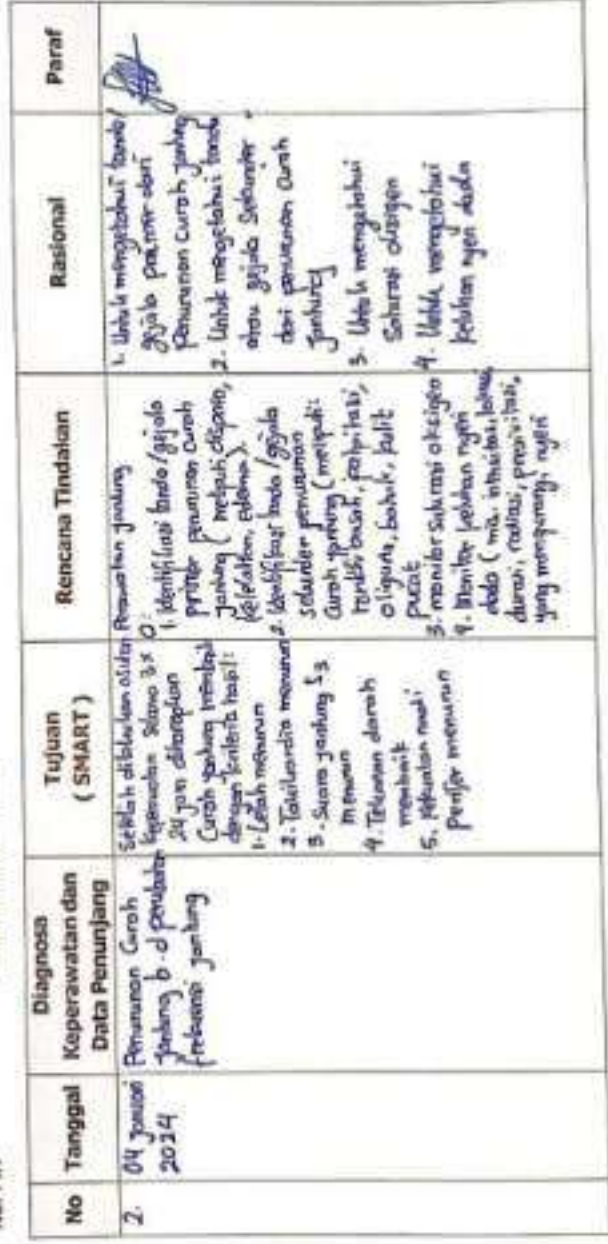 No
Tanggal
Diagnosa
Keperawatan dan
Data Penunjang
Tujuan
( SMART )
Rencana Tindakan
Rasional
Paraf
2.
04 Januari
2024
Penurunan Curah
jantung b.d perubahan
frekuensi jantung
Setelah dilakukan asuhan
keperawatan selama 3x
24 jam diharapkan
Curah jantung membaik
dengan kriteria hasil:
1. Lelah menurun
2. Takikardia menurun
3. Suara jantung S3
menurun
4. Tekanan darah
membaik
5. kekuatan nadi
perifer menurun
Perawatan jantung
O:
1. Identifikasi tanda/gejala
primer penurunan Curah
jantung (meliputi dispnea,
kelelahan, edema).
2. Identifikasi tanda/gejala
sekunder penurunan
Curah jantung (meliputi:
ronkhi, basah, palpitasi,
oliguria, batuk, kulit
pucat
3. monitor saturasi oksigen
4. Monitor keluhan nyeri
dada (mis. intensitas, lokasi,
durasi, radiasi, presivitasi,
yang mengurangi nyeri
1. Untuk mengetahui tanda/
gejala primer dari
penurunan Curah jantung
2. Untuk mengetahui tanda
atau gejala sekunder
dari penurunan Curah
jantung
3. Untuk mengetahui
Saturasi oksigen
4. Untuk mengetahui
keluhan nyeri dada